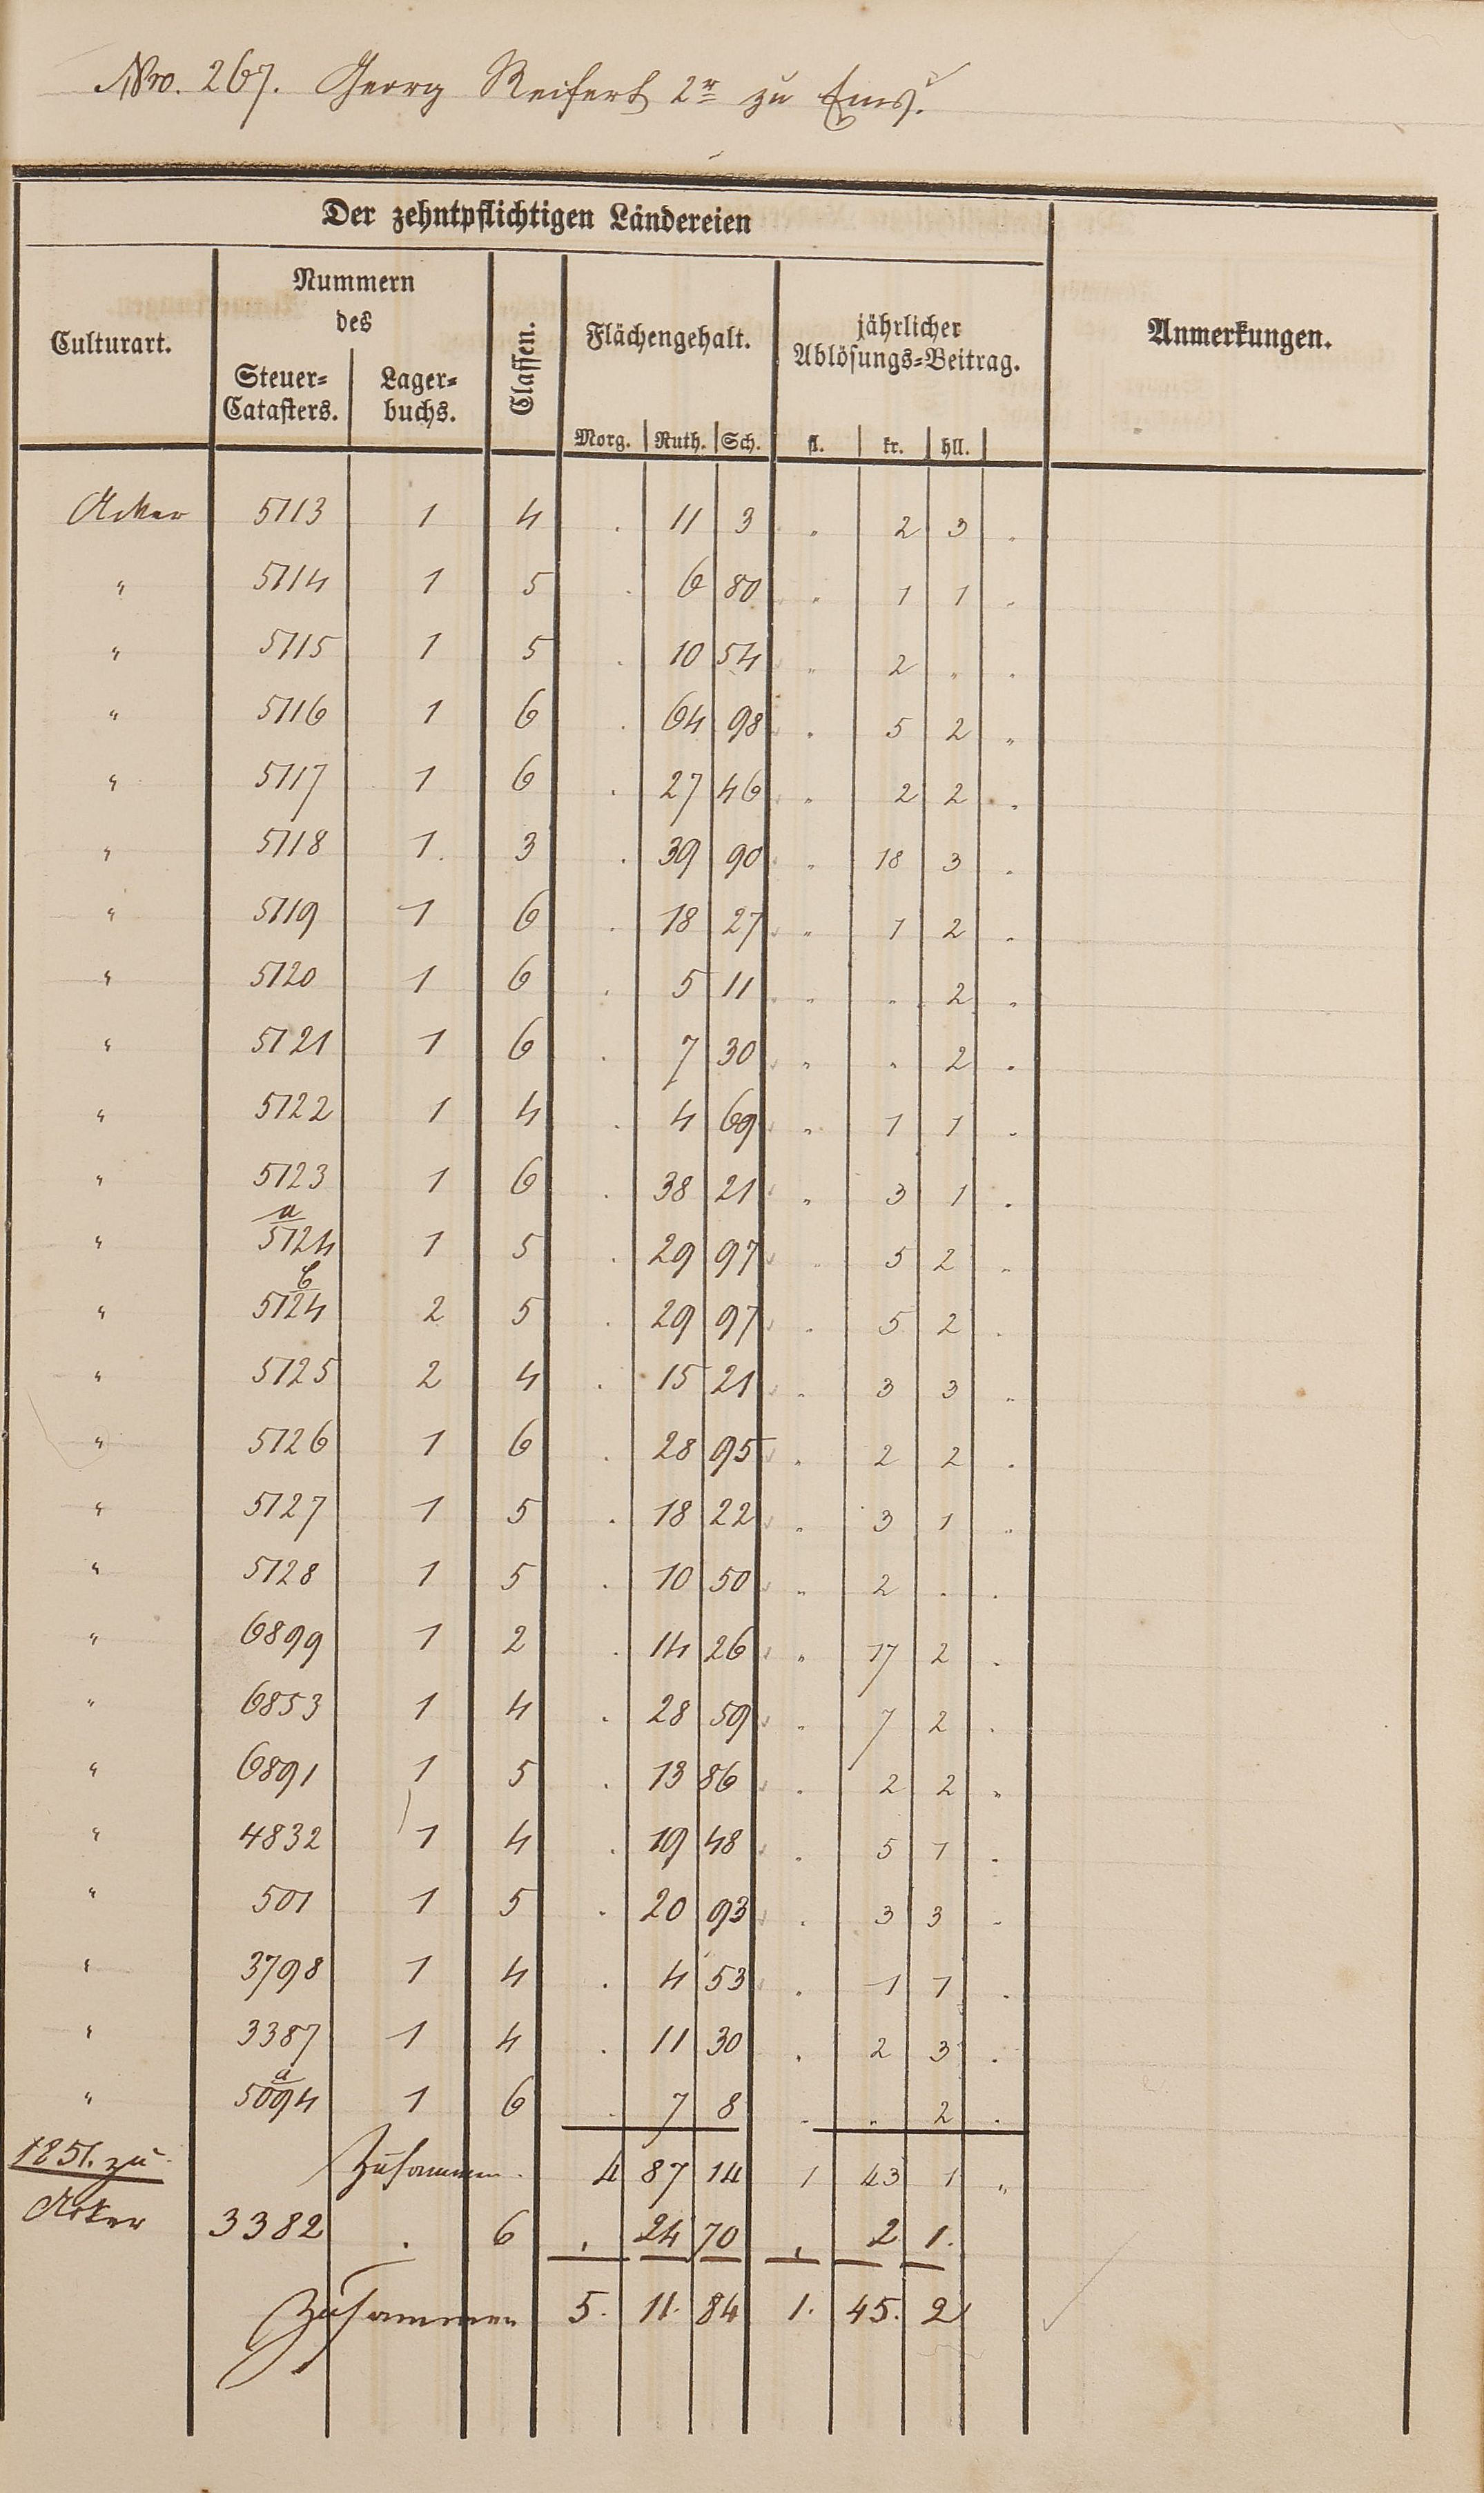 Nro. 267. Georg Reifert 2r zu Ems.
Der zehntpflichtigen Ländereien
Culturart.
Nummern
des
Steuer-
Catasters.
Lager-
buchs.
Classen.
Flächengehalt.
Morg. Ruth. Sch.
jährlicher
Ablösungs-Beitrag.
fl. kr. hll.
Anmerkungen.
Acker 5113 1 4 . 11 3 " 2 3 .
" 5114 1 5 . 6 80 " 1 1 .
" 5115 1 5 . 10 54 " 2 " .
" 5116 1 6 . 64 98 " 5 2 "
" 5117 1 6 . 27 46 " 2 2 .
" 5118 1. 3 . 39 90 " 18 3 .
" 5119 1 6 . 18 27 " 1 2 .
" 5120 1 6 . 5 11 " " 2 .
" 5121 1 6 . 7 30 " " 2 .
" 5122 1 4 . 4 69 " 1 1 .
" 5123 1 6 . 38 21 " 3 1 .
" a/5124 1 5 . 29 97 " 5 2 .
" b/5124 2 5 . 29 97 . 5 2 .
" 5125 2 4 . 15 21 " 3 3 .
" 5126 1 6 . 28 95 " 2 2 .
" 5127 1 5 . 18 22 " 3 1 "
" 5128 1 5 . 10 50 " 2 . .
" 6899 1 2 . 14 26 " 17 2 .
" 6853 1 4 . 28 59 " 7 2 .
" 6891 1 5 . 13 86 . 2 2 "
" 4832 1 4 . 19 48 . 5 1 .
" 501 1 5 . 20 93 . 3 3 .
" 3798 1 4 . 4 53 . 1 1 .
" 3387 1 4 . 11 30 . 2 3 .
" a/5094 1 6 . 7 8 . " 2 .
Zusammen. 4 87 14 1 43 1 "
1851. zu
Acker 3382 . 6 . 24 70 . 2 1.
Zusammen 5. 11. 84 1. 45. 2